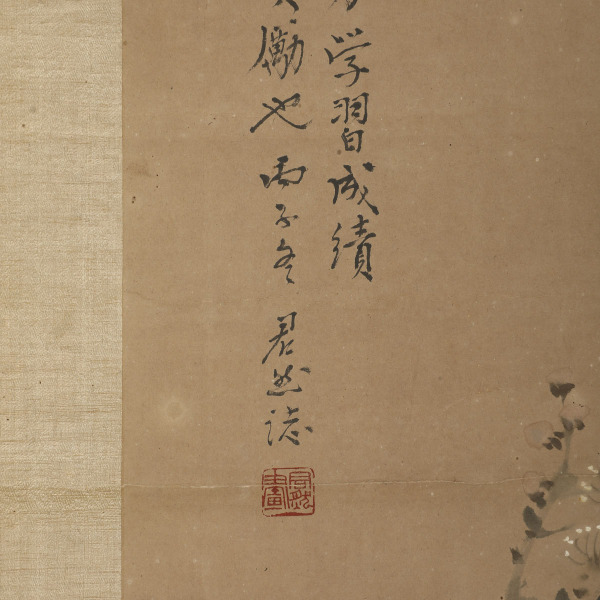 學習成績
勵也 丙子冬 君然誌